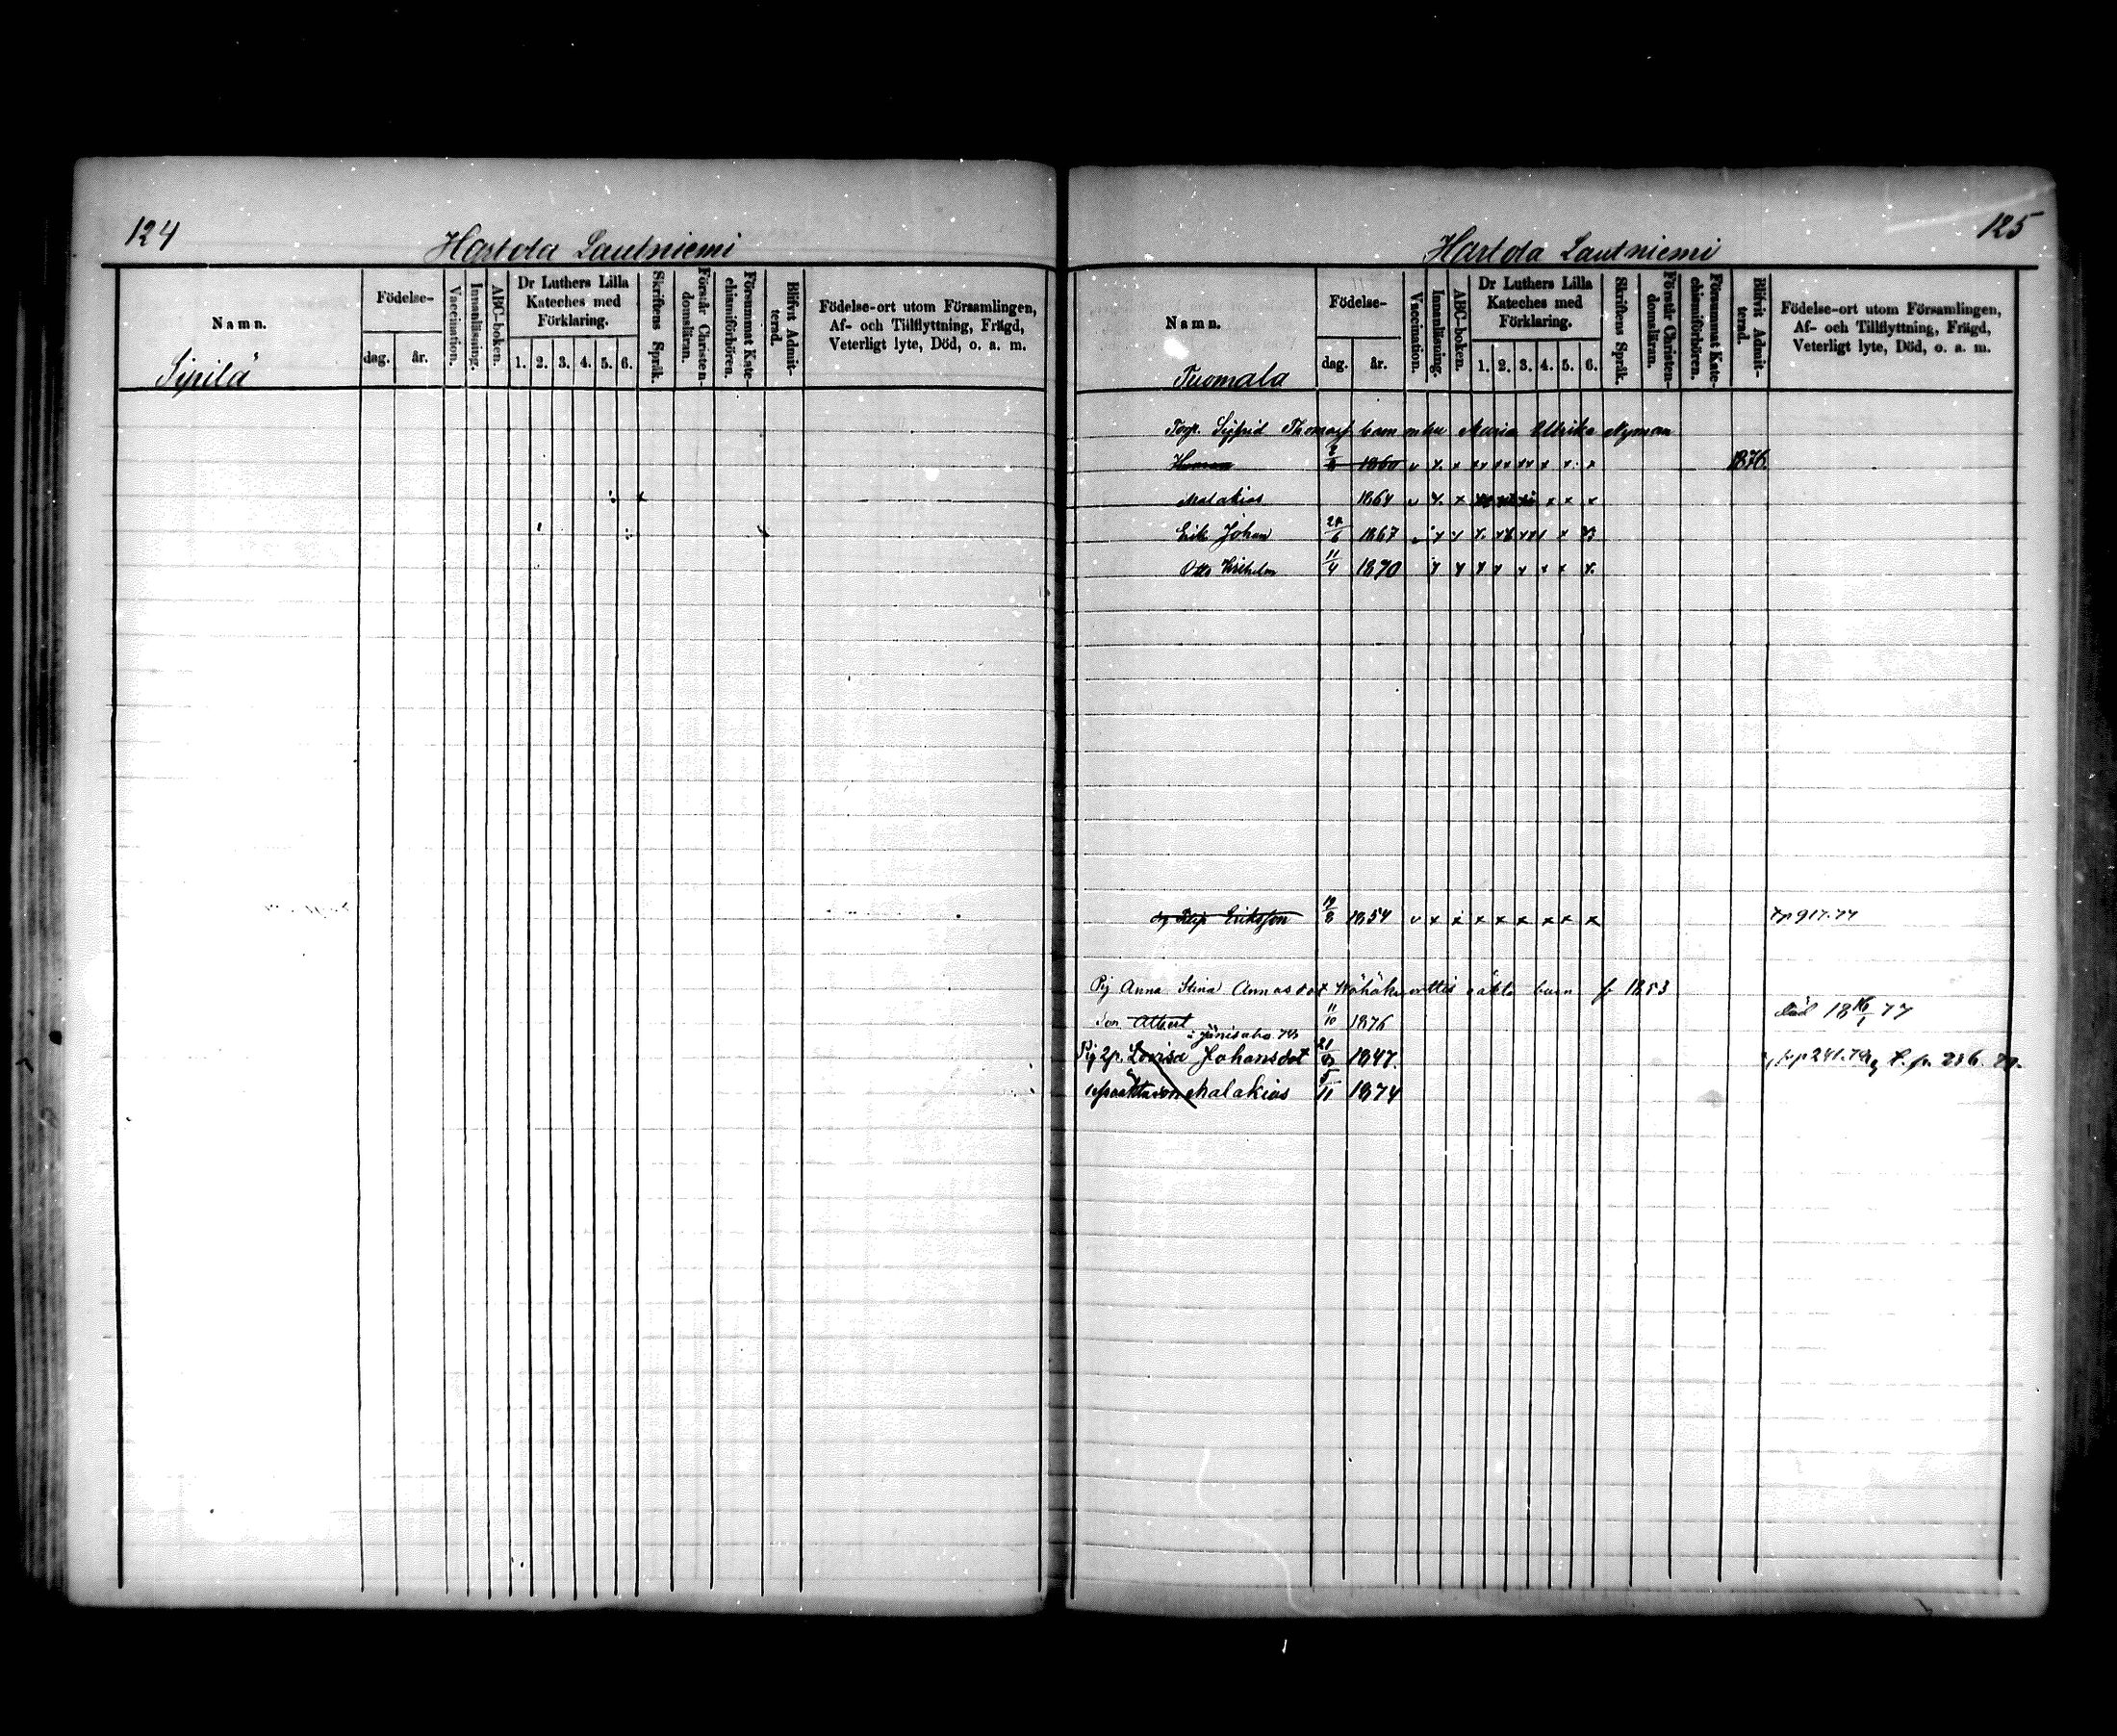 124
Hartola Lautniemi
Namn.
Födelse-
dag.
år.
Vaccination.
Innanläsning.
ABC-boken.
Dr Luthers Lilla
Kateches med
Förklaring.
1. 2. 3. 4. 5. 6.
Skriftens Språk.
Förstår Christen-
domsläran.
Försummat Kate-
chismiförhören.
Blifvit Admit-
terad.
Födelse-ort utom Församlingen,
Af- och Tillflyttning, Frägd,
Veterligt lyte, Död, o. a. m.
Sipilä
125
Hartola Lautniemi
Namn.
Födelse-
dag.
år.
Vaccination.
Innanläsning.
ABC-boken.
Dr Luthers Lilla
Kateches med
Förklaring.
1. 2. 3. 4. 5. 6.
Skriftens Språk.
Förstår Christen-
domsläran.
Försummat Kate-
chismiförhören.
Blifvit Admit-
terad.
Födelse-ort utom Församlingen,
Af- och Tillflyttning, Frägd,
Veterligt lyte, Död, o. a. m.
Tuomala
Sigfrid Thomasf. barn Maria Ulrika Nyman
1860 v x x xx xx xx x x x 1876.
Malakias 1864 v x x x x x
Erik Johan 1867
Otto Wilhelm 11/4 1870 x x x x x x x x
Eriksson 19/8 1854 v x x x x x x x x
Pig Anna Stina Annasdot oäkta barn f 1853
Son Albert 11/10 1876 död 18 16/1 77
Pig Lovisa Johansdot 1847.
Malakias 5/11 1874